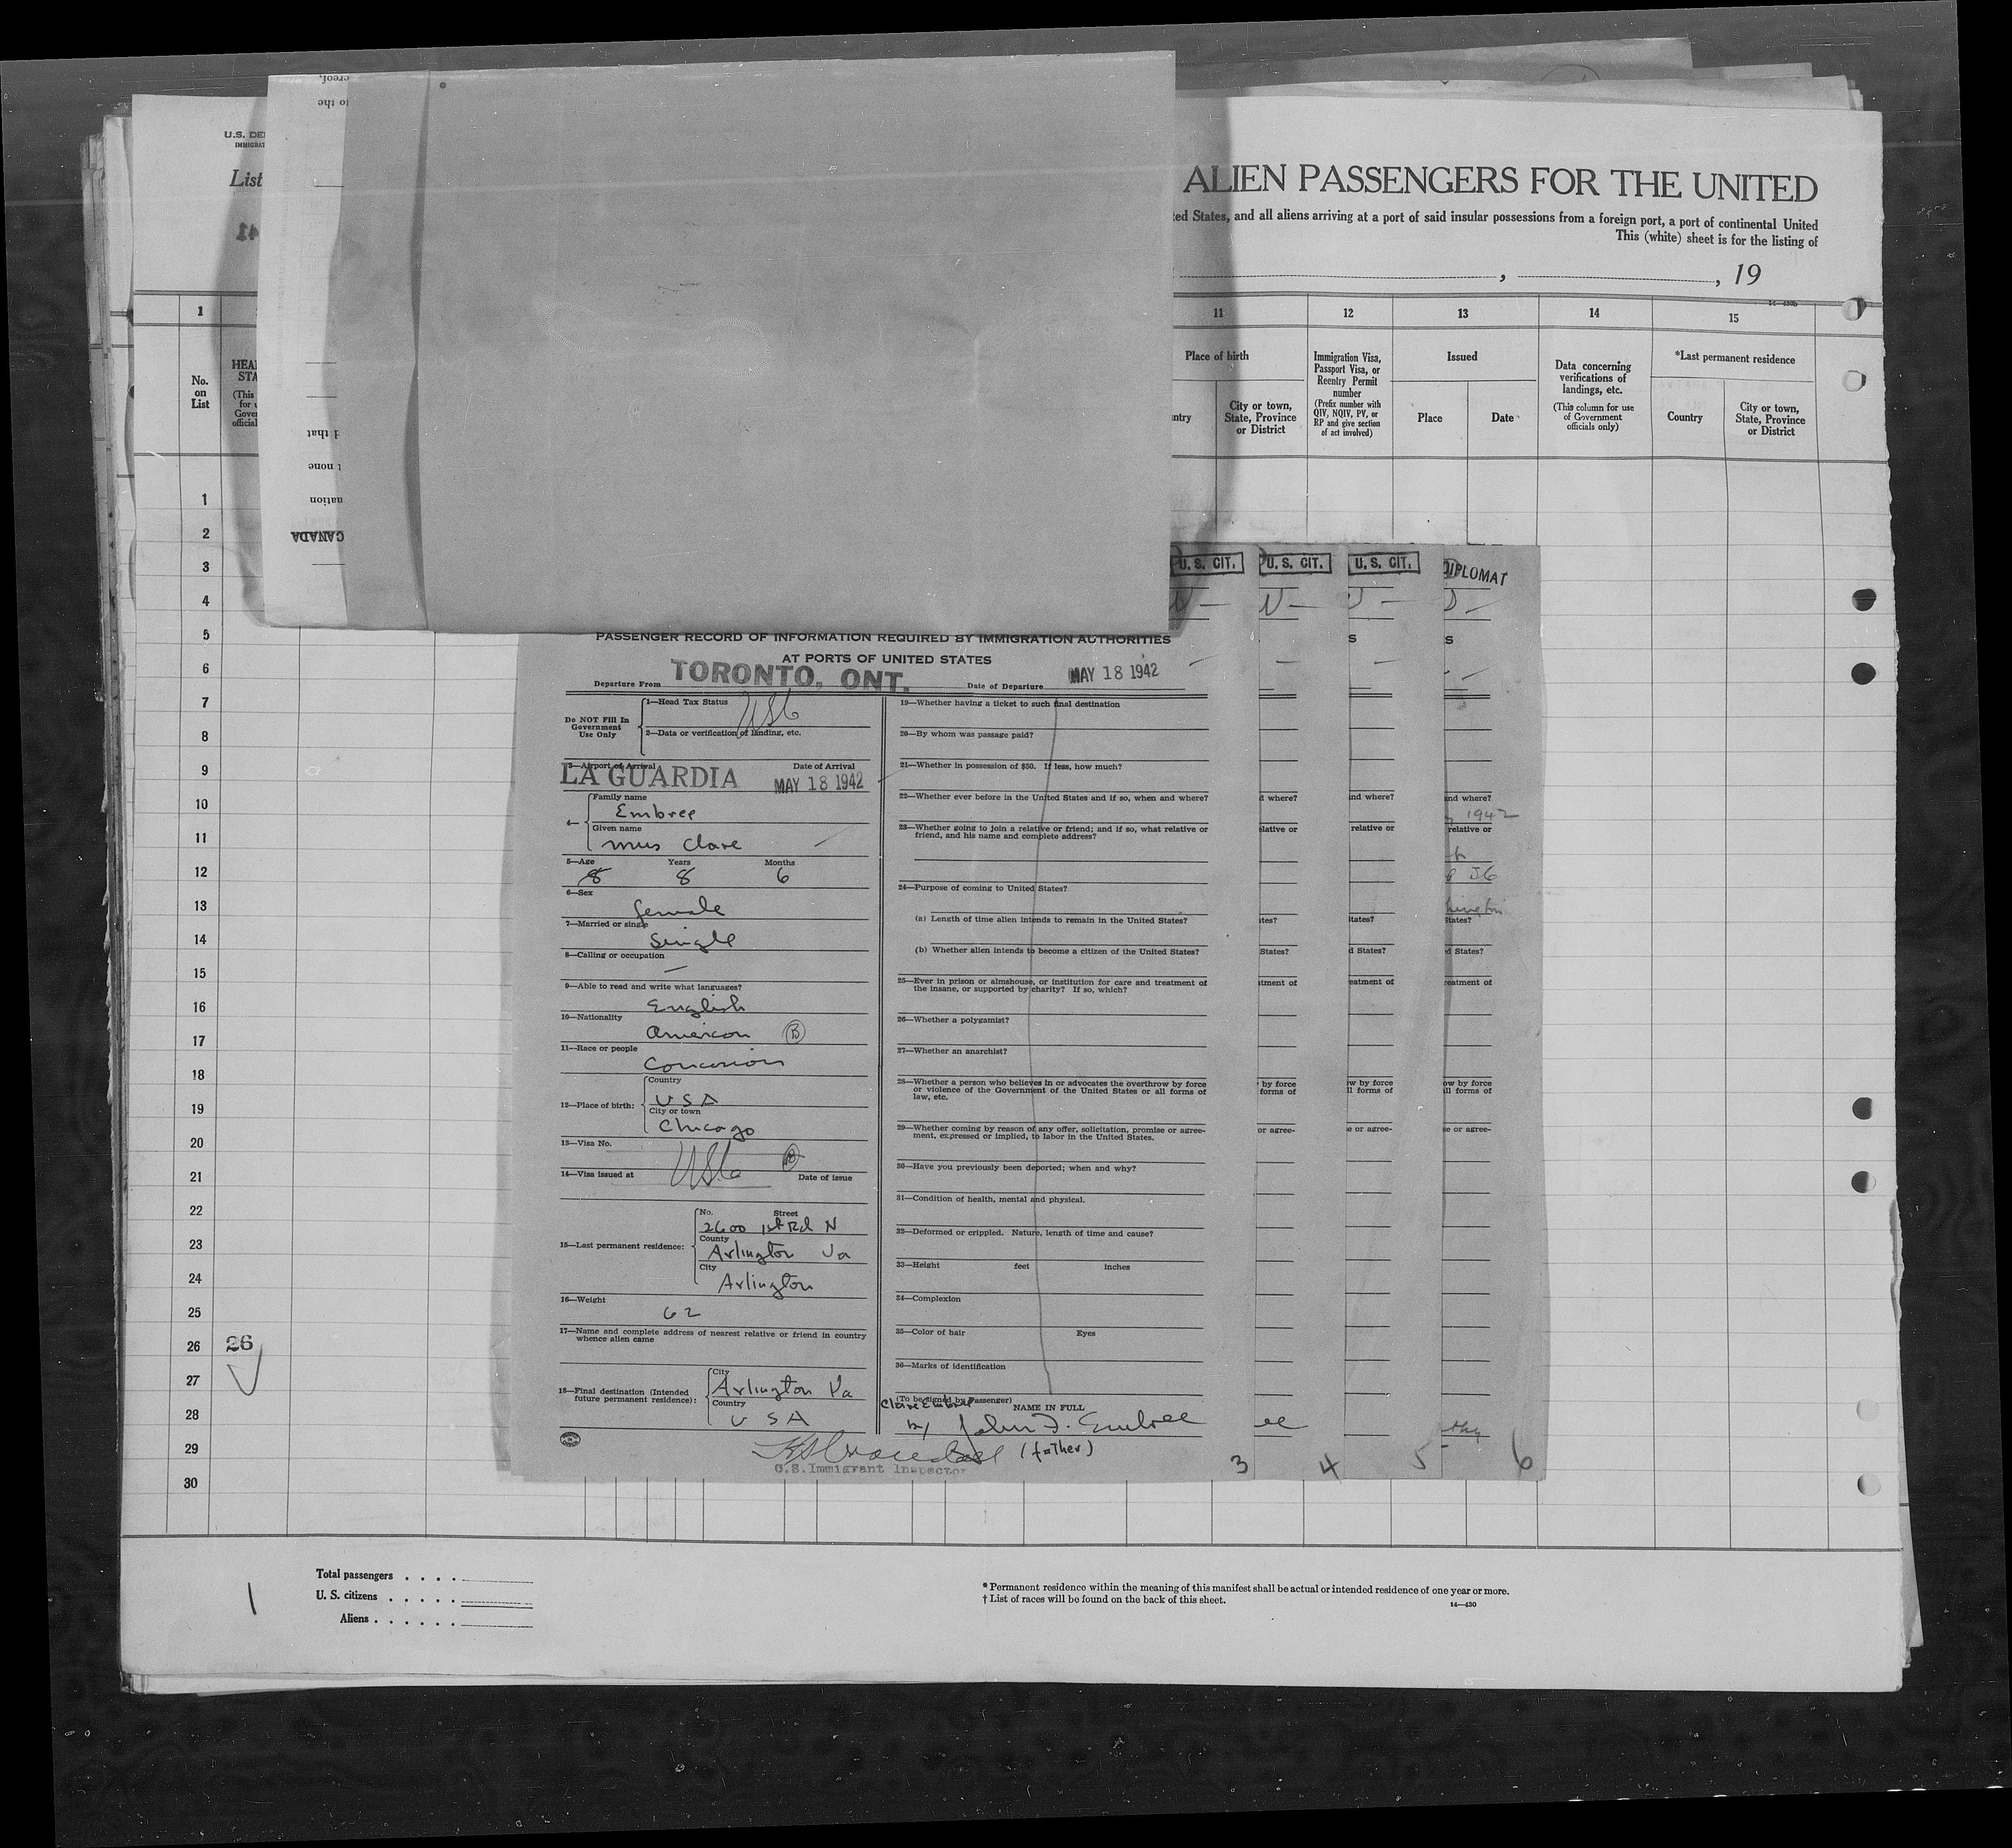 U.S. DE
IMMIGRAT
List
ALIEN PASSENGERS FOR THE UNITED
ted States, and all aliens arriving at a port of said insular possessions from a foreign port, a port of continental United
This (white) sheet is for the listing of
, , 19
1 11 12 13 14 15
No. on List
Place of birth
City or town, State, Province or District
Immigration Visa, Passport Visa, or Reentry Permit number
(Prefix number with QIV, NQIV, PV, or RP and give section of act involved)
Issued
Place Date
Data concerning verifications of landings, etc.
(This column for use of Government officials only)
*Last permanent residence
Country
City or town, State, Province or District
CANADA
U. S. CIT. U. S. CIT. U. S. CIT. DIPLOMAT
PASSENGER RECORD OF INFORMATION REQUIRED BY IMMIGRATION AUTHORITIES
AT PORTS OF UNITED STATES
Departure From TORONTO, ONT. Date of Departure MAY 18 1942
Do NOT Fill In Government Use Only
1—Head Tax Status USC
2—Data or verification of landing, etc.
3—Airport of Arrival Date of Arrival
LA GUARDIA MAY 18 1942
4— Family name
Embree
Given name
Miss Clare
5—Age Years Months
8 8 6
6—Sex
female
7—Married or single
Single
8—Calling or occupation
—
9—Able to read and write what languages?
English
10—Nationality
American B
11—Race or people
12—Place of birth: Country
USA
City or town
Chicago
13—Visa No.
USC
14—Visa issued at Date of issue
15—Last permanent residence: No. Street
2600 1st Rd N
County
Arlington Va
City
Arlington
16—Weight
62
17—Name and complete address of nearest relative or friend in country whence alien came
18—Final destination (Intended future permanent residence): City
Arlington Va
Country
USA
19—Whether having a ticket to such final destination
20—By whom was passage paid?
21—Whether in possession of $50. If less, how much?
22—Whether ever before in the United States and if so, when and where?
23—Whether going to join a relative or friend; and if so, what relative or friend, and his name and complete address?
24—Purpose of coming to United States?
(a) Length of time alien intends to remain in the United States?
(b) Whether alien intends to become a citizen of the United States?
25—Ever in prison or almshouse, or institution for care and treatment of the insane, or supported by charity? If so, which?
26—Whether a polygamist?
27—Whether an anarchist?
28—Whether a person who believes in or advocates the overthrow by force or violence of the Government of the United States or all forms of law, etc.
29—Whether coming by reason of any offer, solicitation, promise or agreement, expressed or implied, to labor in the United States.
30—Have you previously been deported; when and why?
31—Condition of health, mental and physical.
32—Deformed or crippled. Nature, length of time and cause?
33—Height feet inches
34—Complexion
35—Color of hair Eyes
36—Marks of identification
(To be signed by Passenger)
NAME IN FULL
Clare Embree
by John F. Embree
(father)
U.S. Immigrant Inspector
3 4 5 6
1
2
3
4
5
6
7
8
9
10
11
12
13
14
15
16
17
18
19
20
21
22
23
24
25
26 26
27
28
29
30
1
Total passengers
U. S. citizens
Aliens
* Permanent residence within the meaning of this manifest shall be actual or intended residence of one year or more.
† List of races will be found on the back of this sheet.
14—430